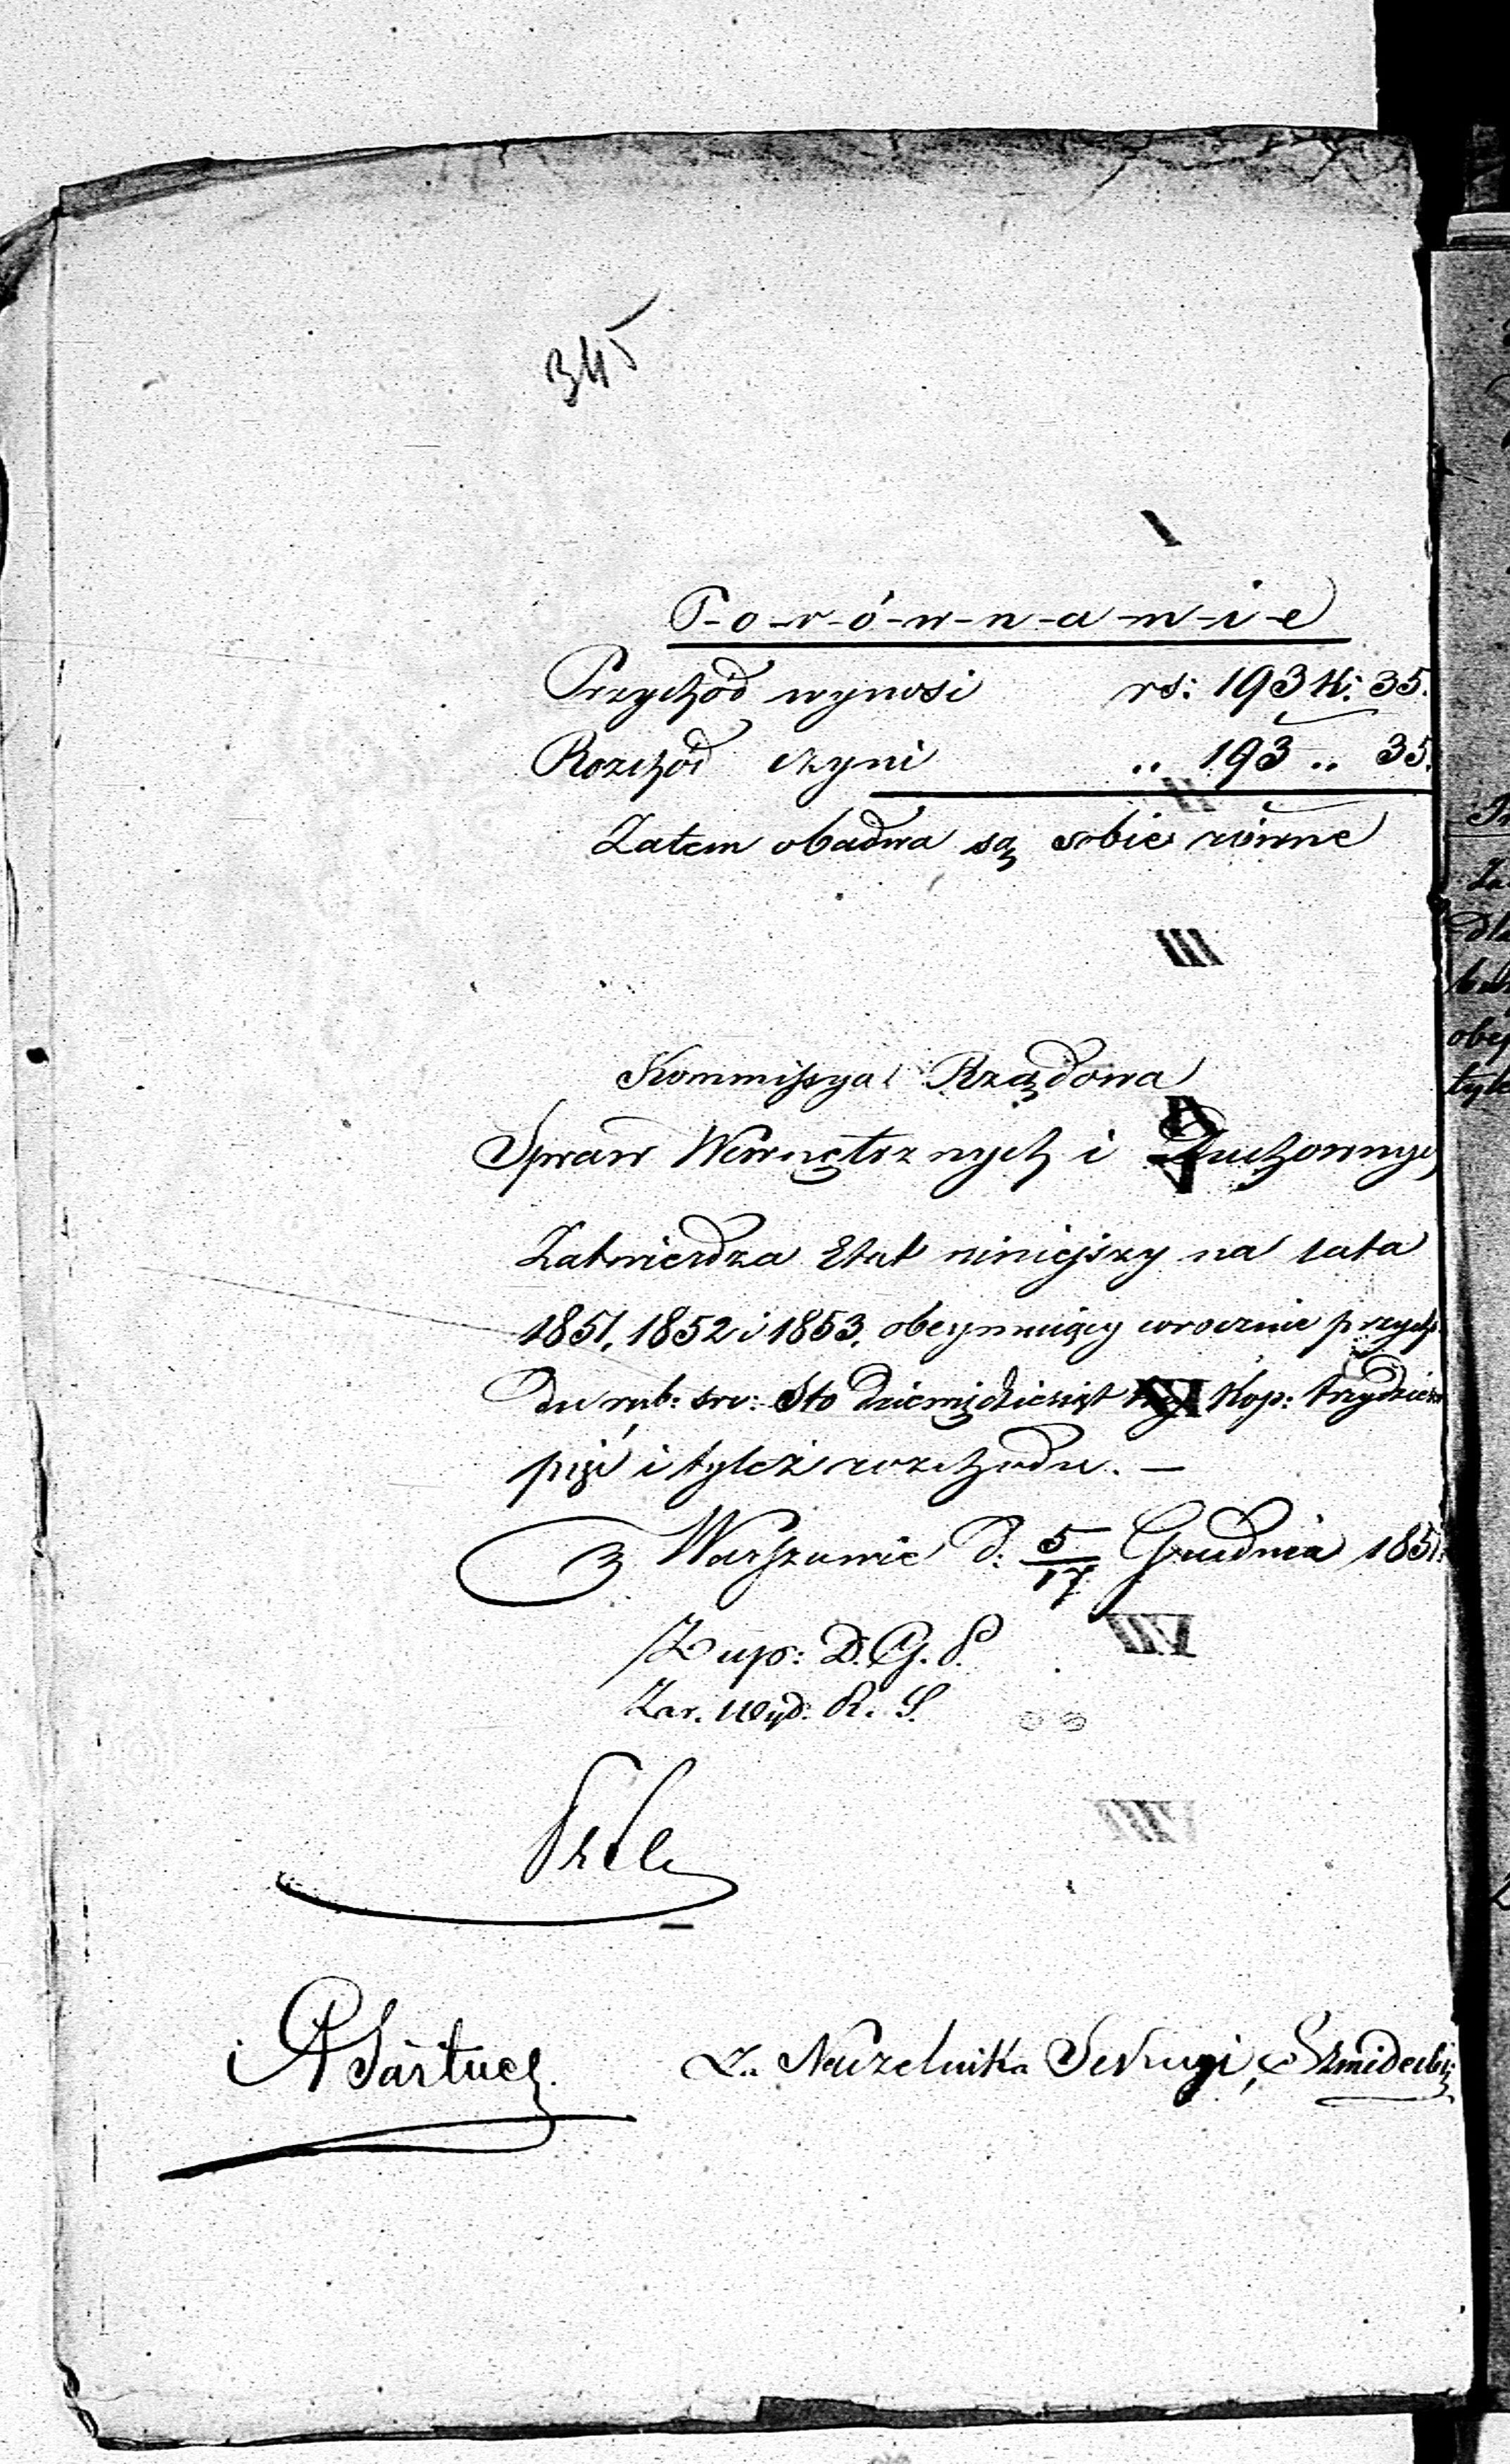 345
P-o-r-ó-w-n-a-n-i-e
Przychód wynosi rs: 193 k: 35.
Rozchód czyni „ 193 „ 35.
Zatem obadwa są sobie równe
III
Kommissya Rządowa
Spraw Wewnętrznych i Duchownych
Zatwierdza Etat niniejszy na lata
1851, 1852 i 1853, obeymuiący corocznie przycho
du rub: sr: Sto dziewięćdziesiąt trzy Kop: trzydzieści
pięć i tyleż rozchodu. —
w Warszawie d. 5/17 Grudnia 1851.
Z up: D. G. P.
Zar. Wyd: R. S.
Za Naczelnika Sekcyi,